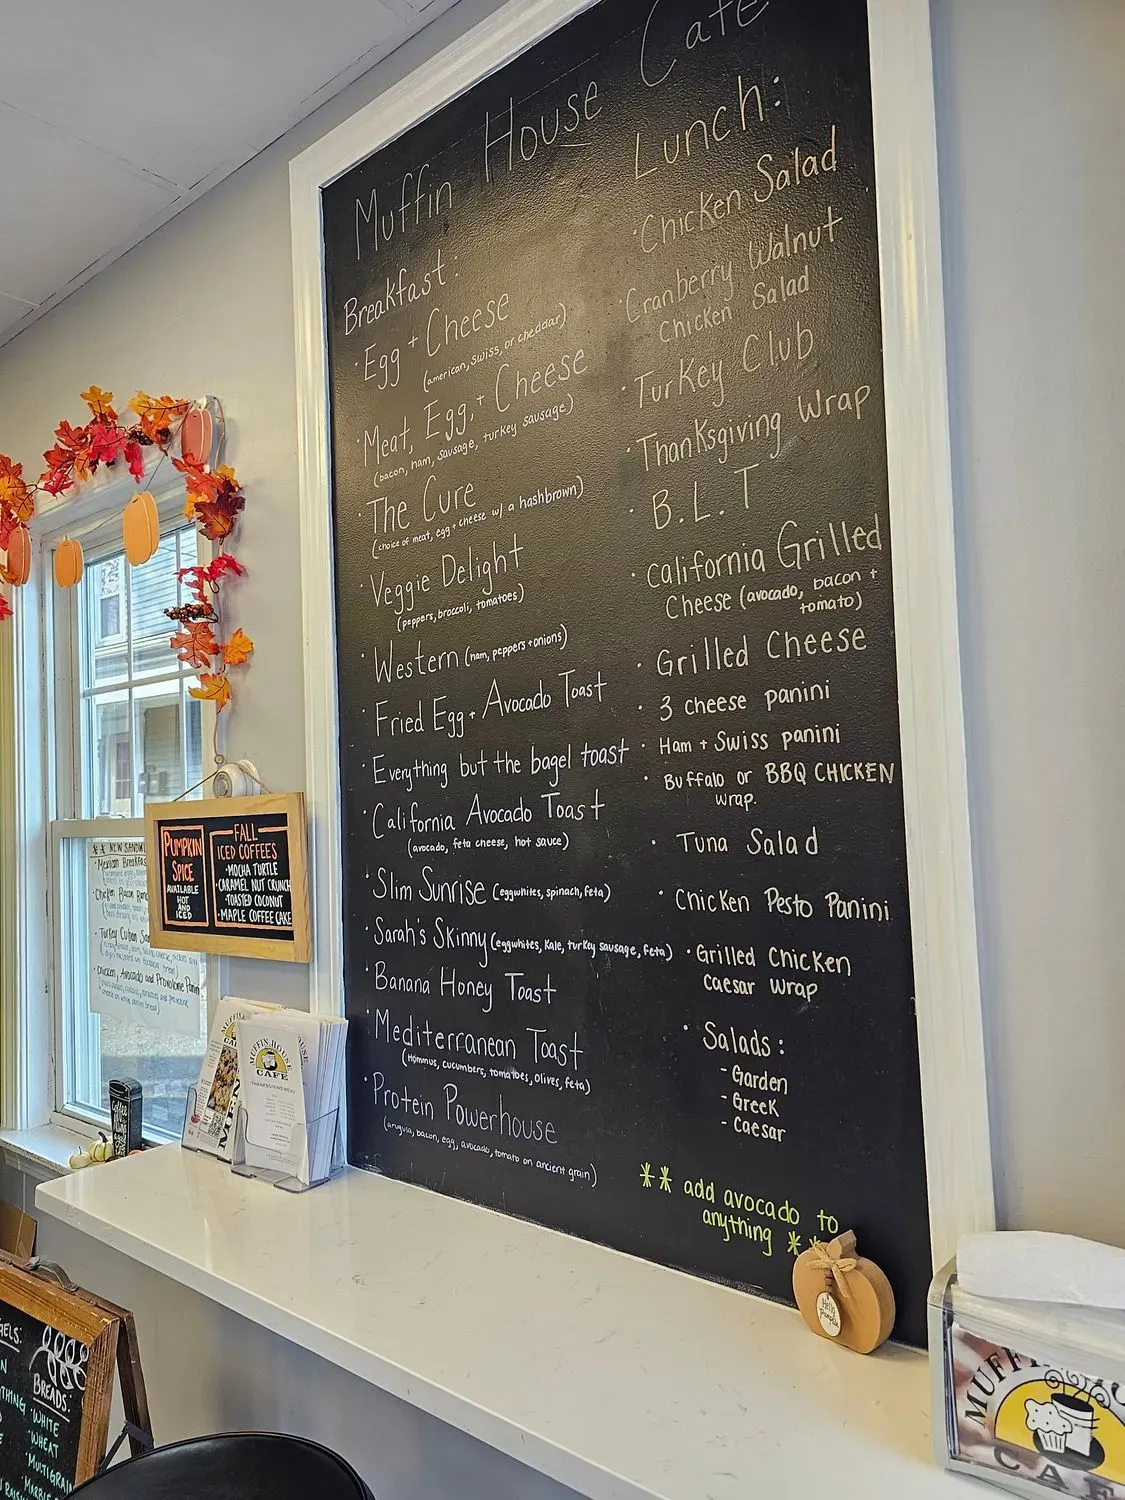 Muffin House Cafe
Breakfast:
· Egg + Cheese
(american, swiss, or cheddar)
· Meat, Egg, + Cheese
(bacon, ham, sausage, turkey sausage)
· The Cure
(choice of meat, egg + cheese w/ a hashbrown)
· Veggie Delight
(peppers, broccoli, tomatoes)
· Western (ham, peppers + onions)
· Fried Egg + Avocado Toast
· Everything but the bagel toast
· California Avocado Toast
(avocado, feta cheese, hot sauce)
· Slim Sunrise (eggwhites, spinach, feta)
· Sarah's Skinny (eggwhites, kale, turkey sausage, feta)
· Banana Honey Toast
· Mediterranean Toast
(Hommus, cucumbers, tomatoes, olives, feta)
· Protein Powerhouse
(arugula, bacon, egg, avocado, tomato on ancient grain)
Lunch:
· Chicken Salad
· Cranberry Walnut
Chicken Salad
· Turkey Club
· Thanksgiving Wrap
· B.L.T
· California Grilled
Cheese (avocado, bacon +
tomato)
· Grilled Cheese
· 3 cheese panini
· Ham + Swiss panini
· Buffalo or BBQ CHICKEN
wrap.
· Tuna Salad
· Chicken Pesto Panini
· Grilled Chicken
Caesar Wrap
· Salads:
- Garden
- Greek
- Caesar
** add avocado to
anything **
Hello
pumpkin
PUMPKIN
SPICE
AVAILABLE
HOT
AND
ICED
FALL
ICED COFFEES
· MOCHA TURTLE
· CARAMEL NUT CRUNCH
· TOASTED COCONUT
· MAPLE COFFEE CAKE
** NEW SANDW
· Mexican Breakfas
· Chicken Bacon Ran
· Turkey Cuban San
· Chicken, Avocado and Provolone Panin
MUFFIN HOUSE
CAFE
THANKSGIVING MENU
MENU
Coffee
BREADS:
· WHITE
· WHEAT
· MULTIGRAIN
MUFFIN
CAFE